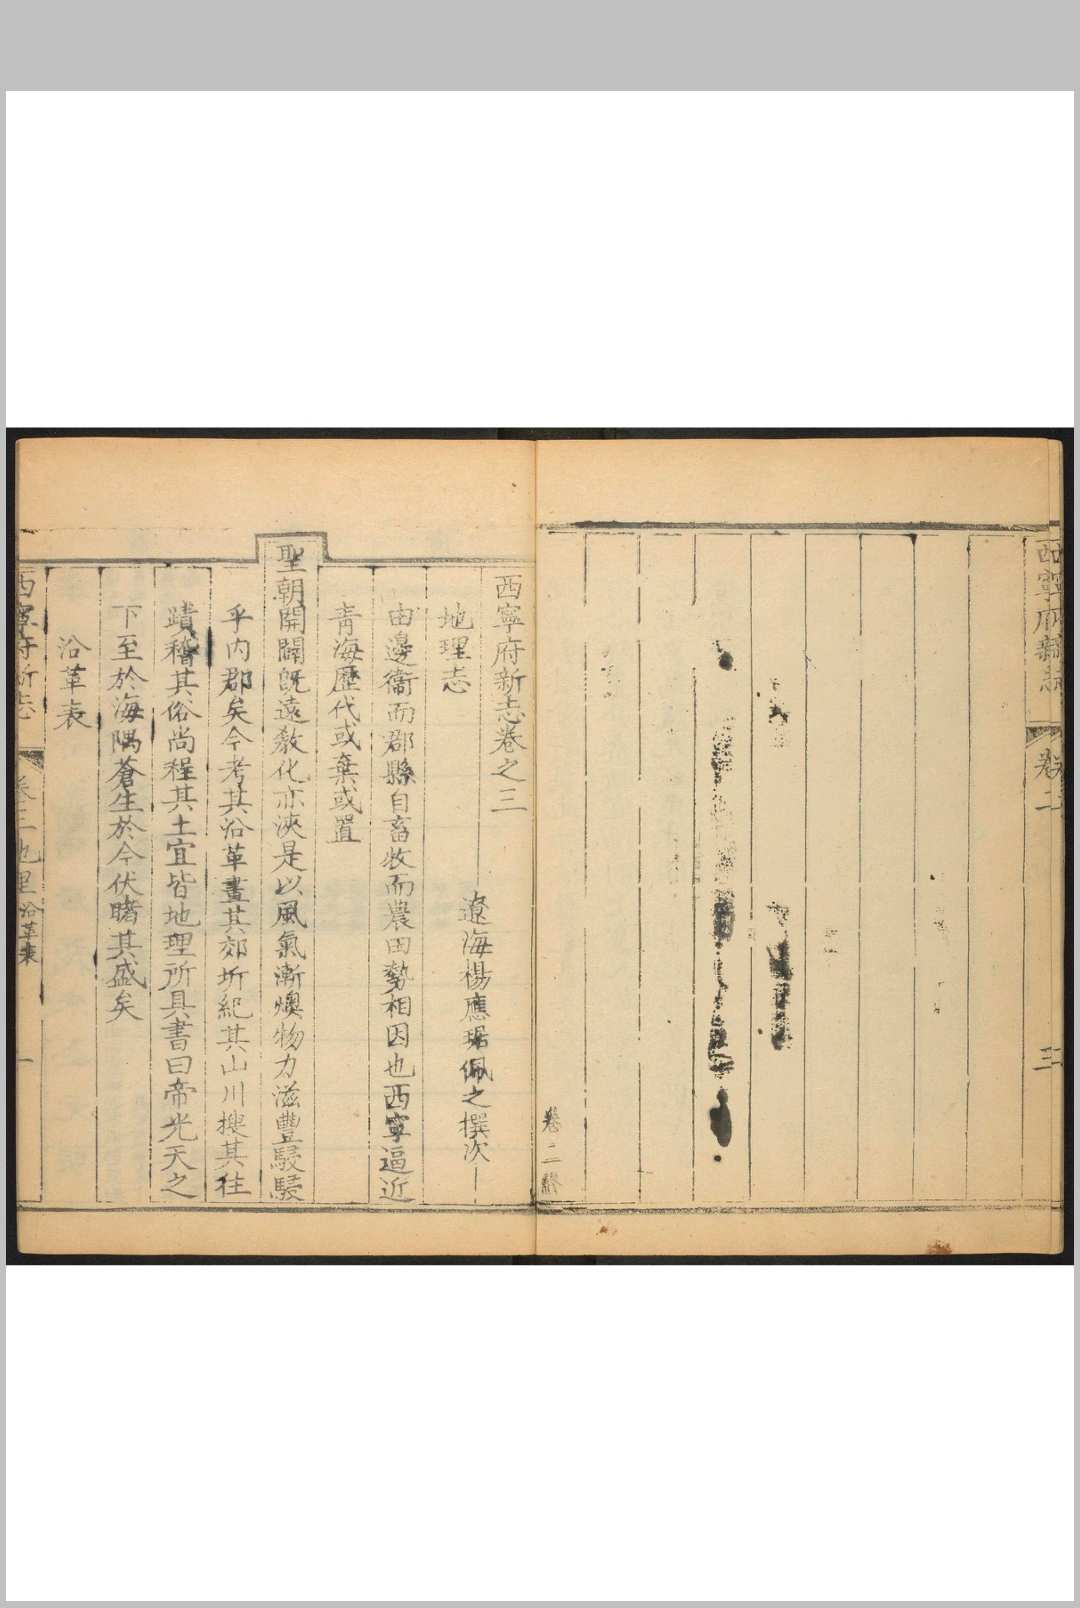 西寧府新志
卷二
三
卷二終
西寧府新志卷之三
遼海楊應琚佩之撰次
地理志
由邊衞而郡縣自畜牧而農田勢相因也西寧逼近
青海歷代或棄或置
聖朝開闢旣遠敎化亦浹是以風氣漸燠物力滋豐駸駸
乎内郡矣今考其沿革畫其郊圻紀其山川搜其往
蹟稽其俗尚程其土宜皆地理所具書曰帝光天之
下至於海隅蒼生於今伏睹其盛矣
沿革表
西寧府新志
卷三地理沿革表
一